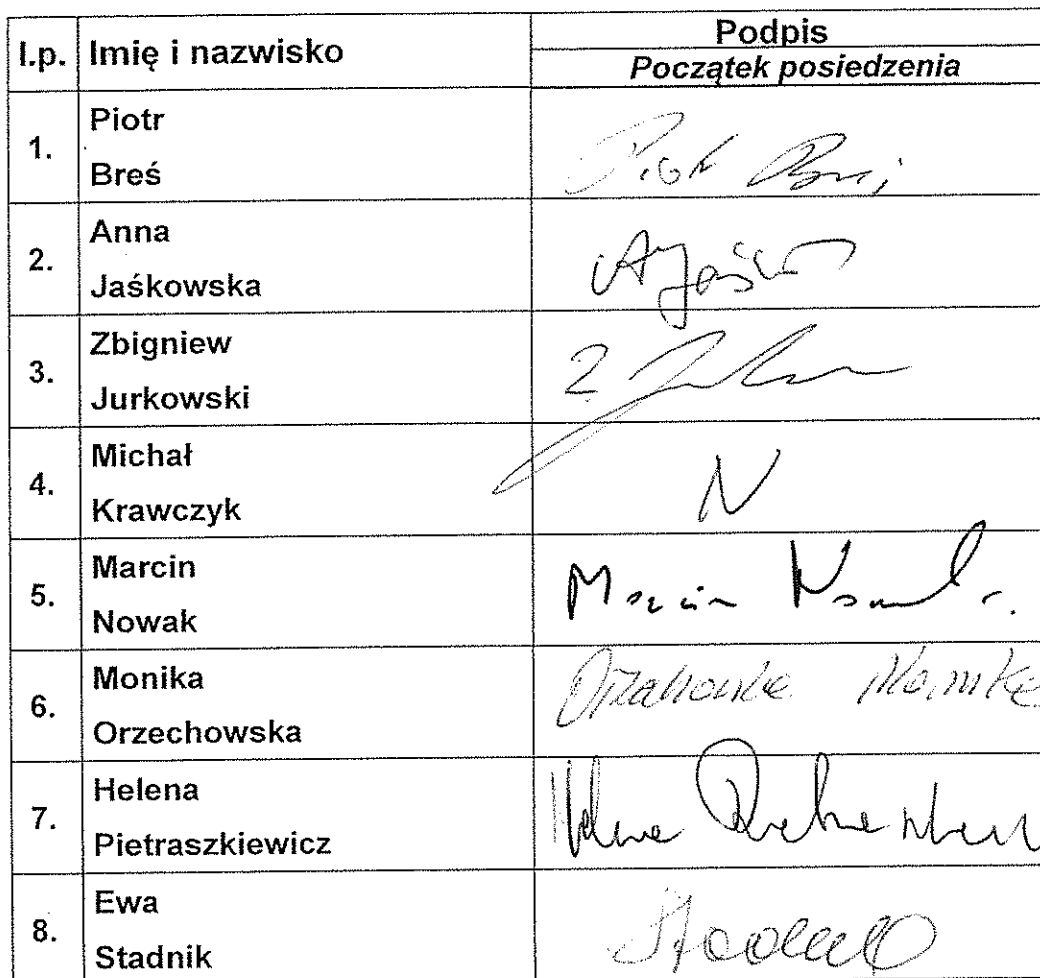 l.p. Imię i nazwisko Podpis
Początek posiedzenia
1. Piotr
Breś
2. Anna
Jaśkowska
3. Zbigniew
Jurkowski
4. Michał
Krawczyk
N
5. Marcin
Nowak
Marcin
6. Monika
Orzechowska
Monika
7. Helena
Pietraszkiewicz
Helena
8. Ewa
Stadnik
Stadnik